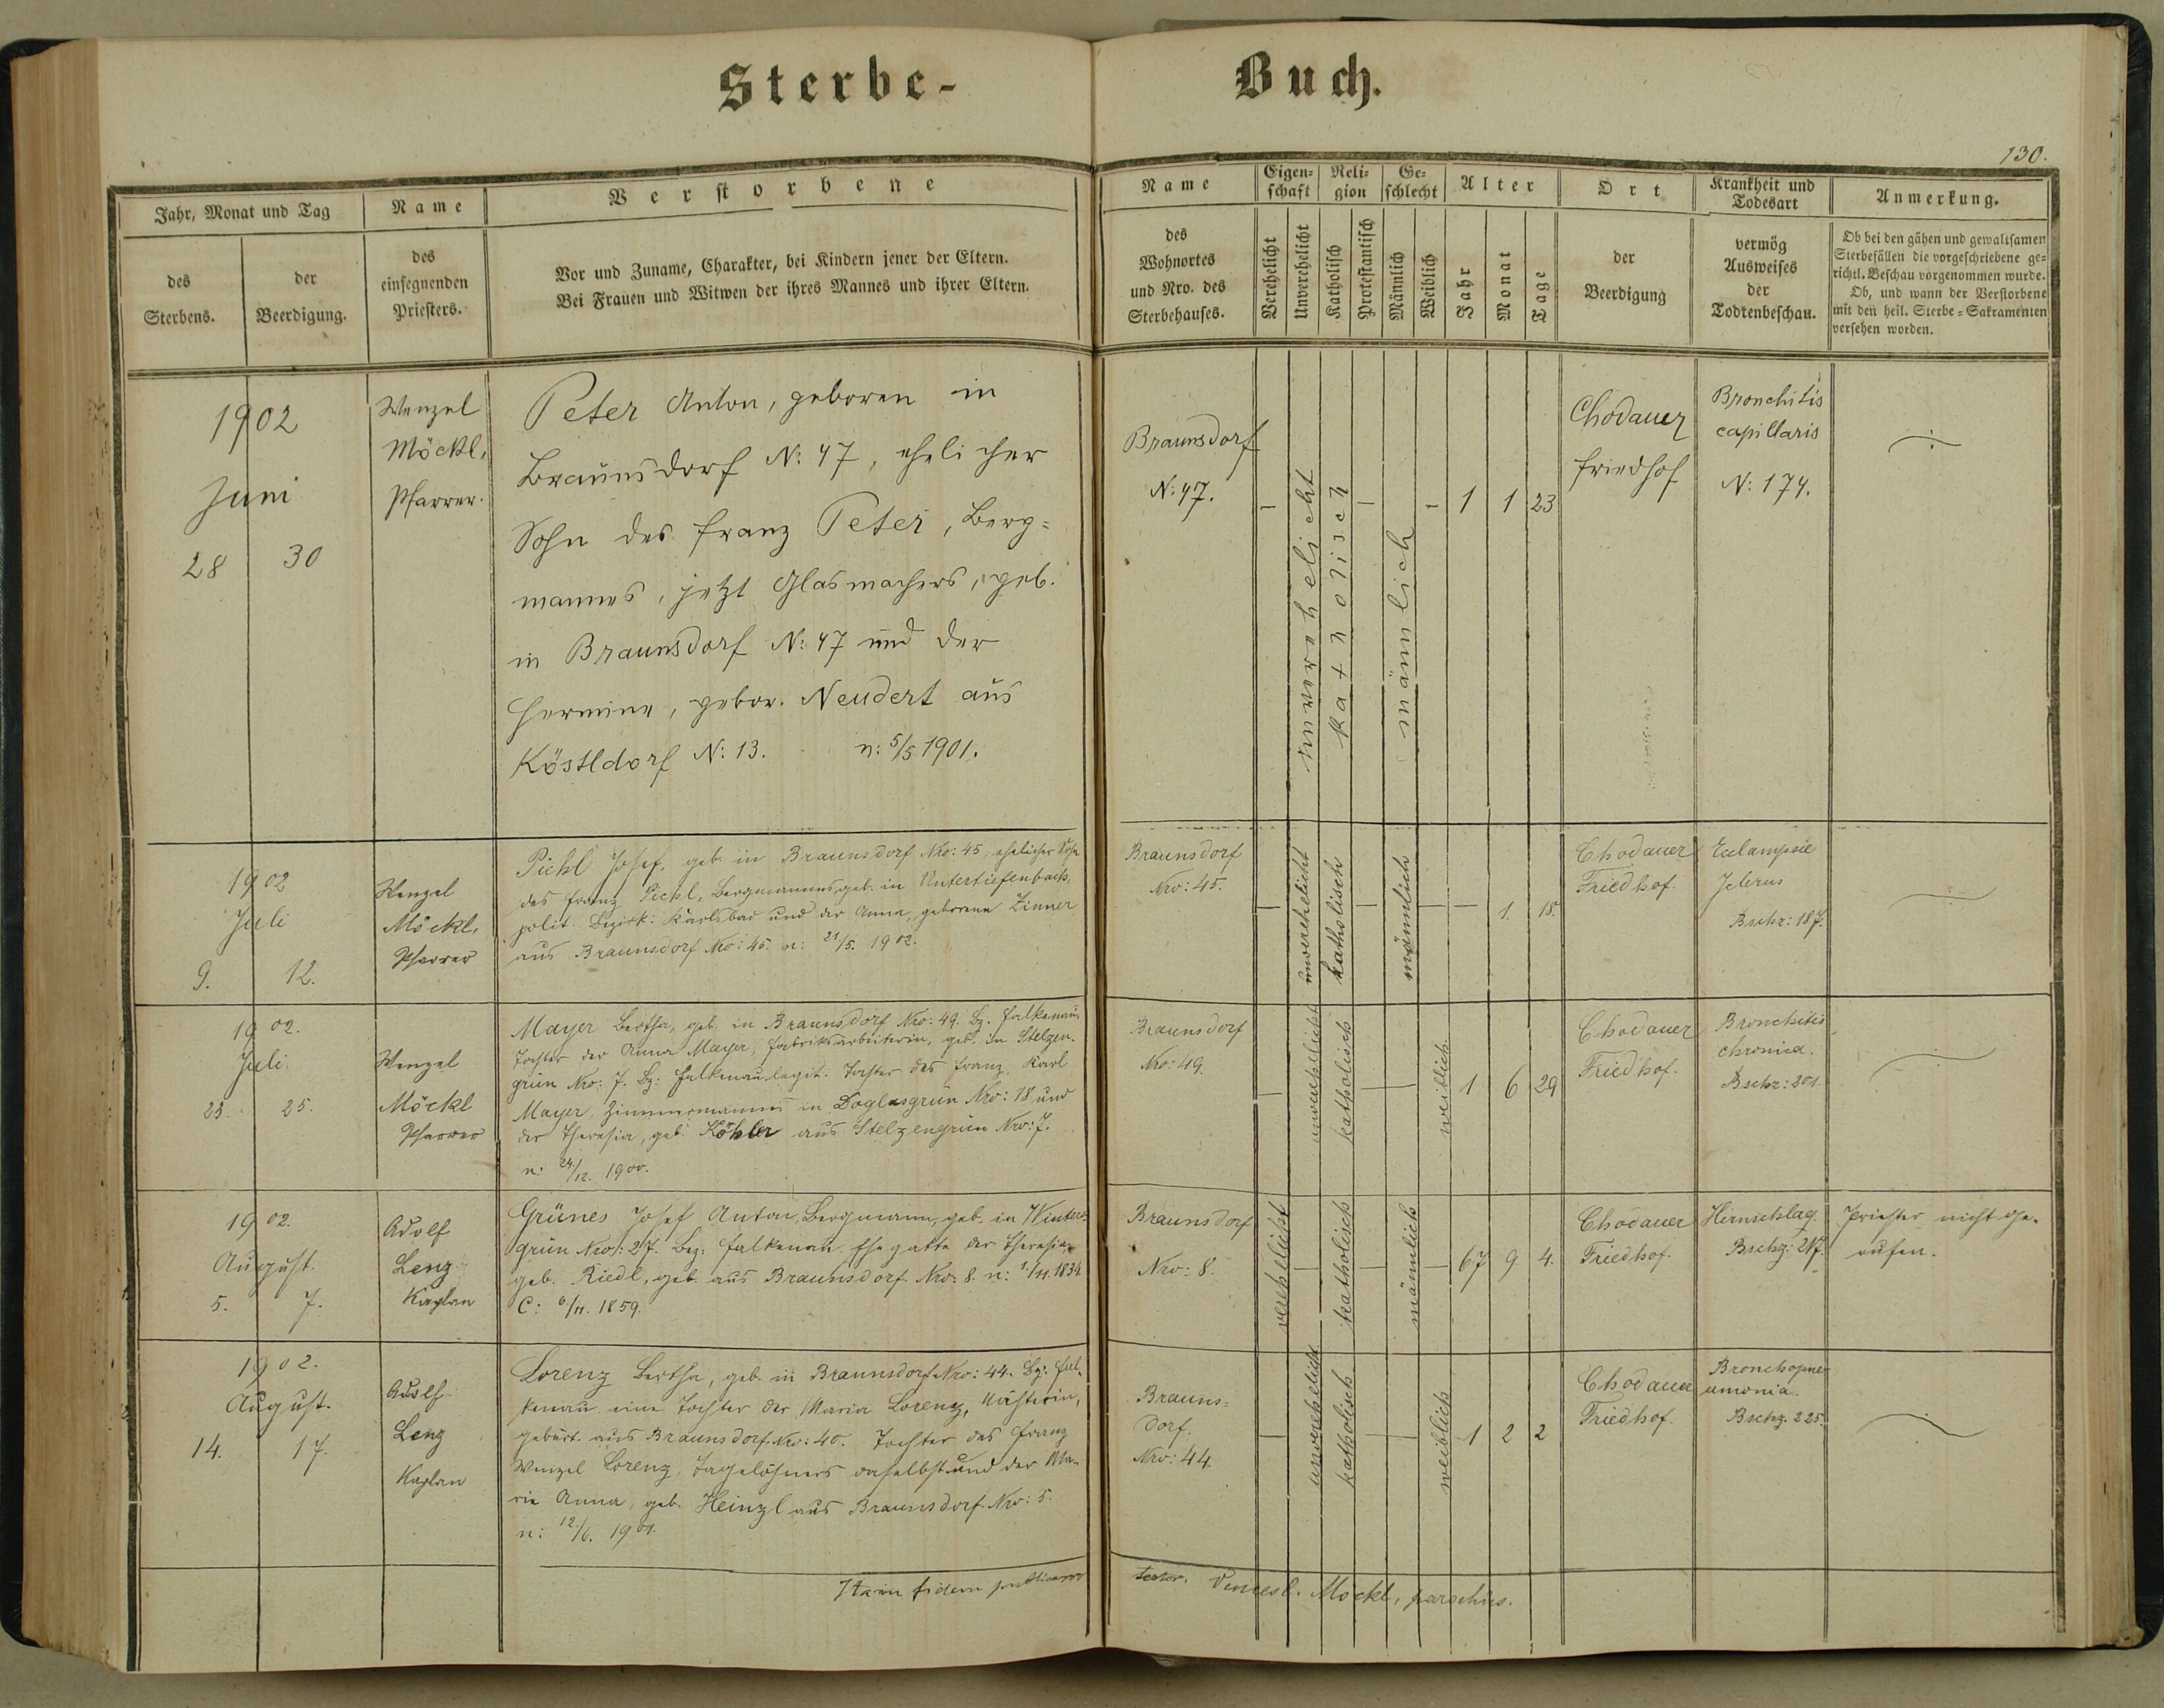 Sterbe-
Buch.
130.
Jahr, Monat und Tag
des
Sterbens.
der
Beerdigung.
Name
des
einsegnenden
Priesters.
Verstorbene
Vor und Zuname, Charakter, bei Kindern jener der Eltern.
Bei Frauen und Witwen der ihres Mannes und ihrer Eltern.
Name
des
Wohnortes
und Nro. des
Sterbehauses.
Eigen-
schaft
Verehelicht
Unverehelicht
Reli-
gion
Katholisch
Protestantisch
Ge-
schlecht
Männlich
Weiblich
Alter
Jahr
Monat
Tage
Ort
der
Beerdigung
Krankheit und
Todesart
vermög
Ausweises
der
Todtenbeschau.
Anmerkung.
Ob bei den gähen und gewaltsamen
Sterbefällen die vorgeschriebene ge-
richtl. Beschau vorgenommen wurde.
Ob, und wann der Verstorbene
mit den heil. Sterbe-Sakramenten
versehen worden.
1902
Juni
28
30
Wenzel
Möckl,
Pfarrer.
Peter Anton, geboren in
Braunsdorf N: 47, ehelicher
Sohn des Franz Peter, Berg-
mannes, jetzt Glasmachers, geb.
in Braunsdorf N: 47 und der
Hermine, gebor. Neudert aus
Köstldorf N: 13. n: 5/5 1901.
Braunsdorf
N: 47.
-
unverehelicht
katholisch
-
männlich
-
1
1
23
Chodauer
Friedhof
Bronchitis
capillaris
N: 174.
1902
Juli
9.
12.
Wenzel
Möckl,
Pfarrer
Pichl Josef, geb. in Braunsdorf Nro: 45, ehelicher Sohn
des Franz Pichl, Bergmannes, geb. in Untertiefenbach,
polit. Bezirk: Karlsbad und der Anna, geborene Zinner
aus Braunsdorf Nro: 45. n: 21/5. 1902.
Braunsdorf
Nro: 45.
unverehelicht
katholisch
männlich
1.
18.
Chodauer
Friedhof.
Bschz: 187.
1902.
Juli
23.
25.
Wenzel
Möckl
Pfarrer
Mayer Bertha, geb. in Braunsdorf Nro: 49. Bz. Falkenau
Tochter der Anna Mayer, Fabriksarbeiterin, geb. in Stelzen-
grün Nro: 7. Bz: Falkenau legit. Tochter des Franz Karl
Mayer, Zimmermannes in Doglasgrün Nro: 18 und
der Theresia, geb. Köhler aus Stelzengrün Nro: 7.
n: 24/12. 1900.
Braunsdorf
Nro: 49.
unverehelicht
katholisch
weiblich
1
6
29
Chodauer
Friedhof.
Bronchitis
chronica.
Bschz: 201.
1902.
August.
5.
7.
Adolf
Lenz
Kaplan
Grünes Josef Anton, Bergmann, geb. in Winters-
grün Nro: 27. Bez: Falkenau. Ehegatte der Theresia,
geb. Riedl, geb. aus Braunsdorf Nro: 8. n: 1/11. 1834.
C: 6/11. 1859.
Braunsdorf
Nro: 8.
verehelicht
katholisch
männlich
67
9
4.
Chodauer
Friedhof.
Hirnschlag
Bschz: 217.
Priester nicht ge-
rufen.
1902.
August.
14.
17.
Adolf
Lenz
Kaplan
Lorenz Bertha, geb. in Braunsdorf Nro: 44. Bz: Fal-
kenau eine Tochter der Maria Lorenz,
gebürt. aus Braunsdorf Nro: 40. Tochter des Franz
Wenzel Lorenz, Tagelöhners daselbst und der Ma-
rie Anna, geb. Heinzl aus Braunsdorf Nro: 5.
n: 12./6. 1901.
Brauns-
dorf.
Nro: 44.
unverehelicht
katholisch
weiblich
1
2
2
Chodauer
Friedhof.
Bronchopne-
umonia.
Bschz. 225.
Ita in fidem publicam
testor. Venzesl. Möckl, parochus.